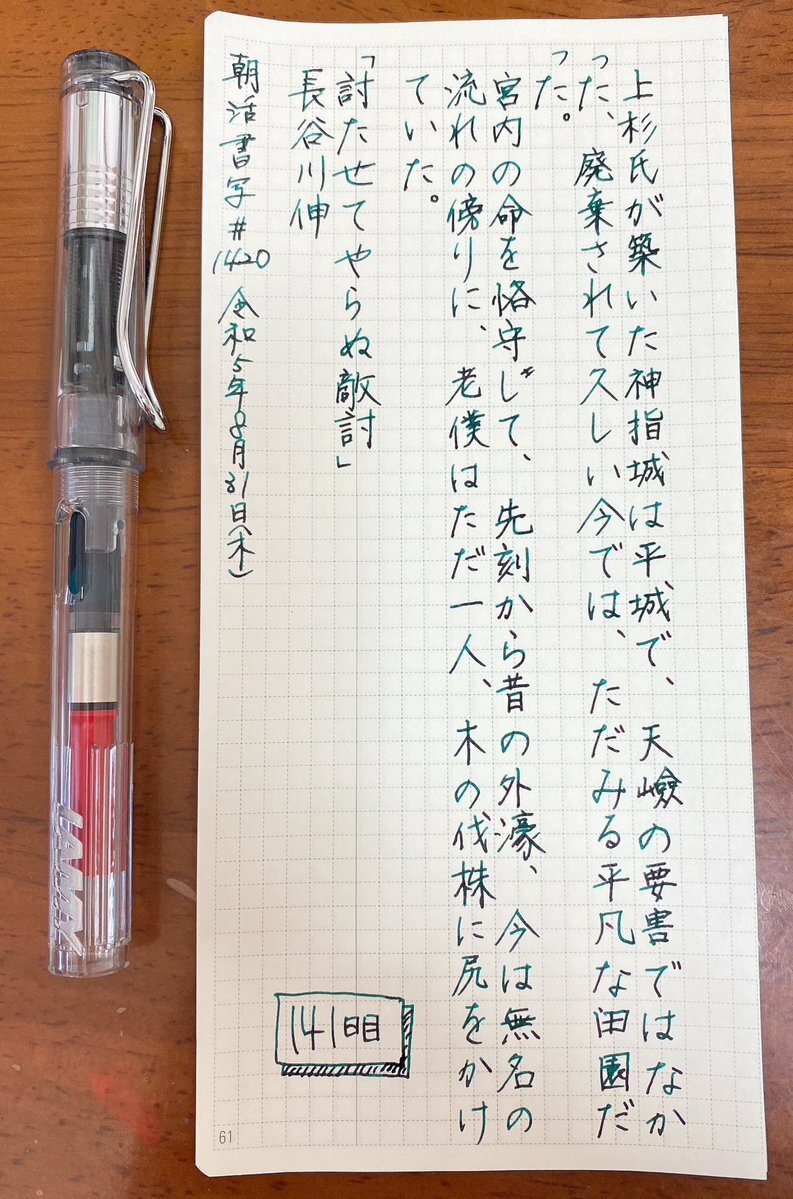 上杉氏が築いた神指城は平城で、天嶮の要害ではなか
った、廃棄されて久しい今では、ただみる平凡な田園だ
った。
宮内の命を恪守して、先刻から昔の外濠、今は無名の
流れの傍りに、老僕はただ一人、木の伐株に尻をかけ
ていた。
「討たせてやらぬ敵討」
長谷川伸
朝活書写#1420 令和5年8月31日(木)
141日目
61
LAMY